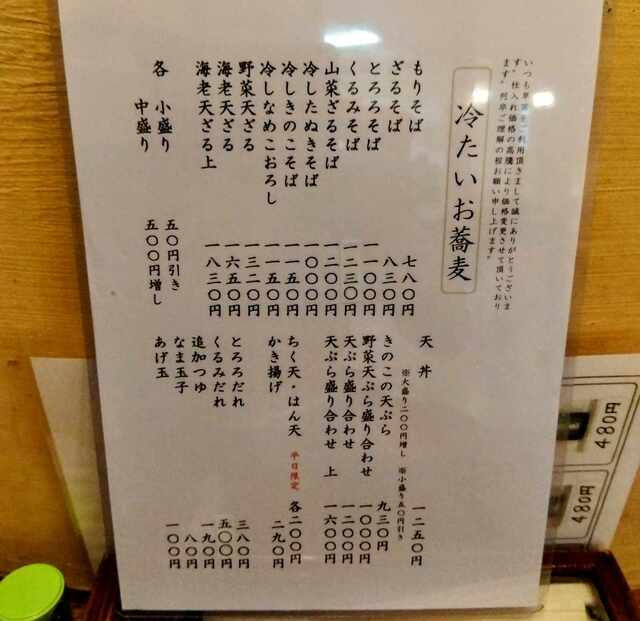 いつも をご利用頂きまして誠にありがとうございま
す。仕入れ価格の高騰により価格変更させて頂いており
ます。何卒ご理解の程お願い申し上げます。
冷たいお蕎麦
もりそば 七八〇円
ざるそば 八三〇円
とろろそば 一一〇〇円
くるみそば 一二三〇円
山菜ざるそば 一二〇〇円
冷したぬきそば 一〇〇〇円
冷しきのこそば 一一五〇円
冷しなめこおろし 一一五〇円
野菜天ざる 一三二〇円
海老天ざる 一六五〇円
海老天ざる上 一八三〇円
各 小盛り 五〇円引き
中盛り 五〇〇円増し
天丼 一二五〇円
※大盛り二〇〇円増し ※小盛り五〇円引き
きのこの天ぷら 九三〇円
野菜天ぷら盛り合わせ 一〇〇〇円
天ぷら盛り合わせ 一二〇〇円
天ぷら盛り合わせ 上 一六〇〇円
ちく天・はん天 平日限定 各二〇〇円
かき揚げ 二九〇円
とろろだれ 三八〇円
くるみだれ 五〇〇円
追加つゆ 一九〇円
なま玉子 八〇円
あげ玉 一〇〇円
480円
480円